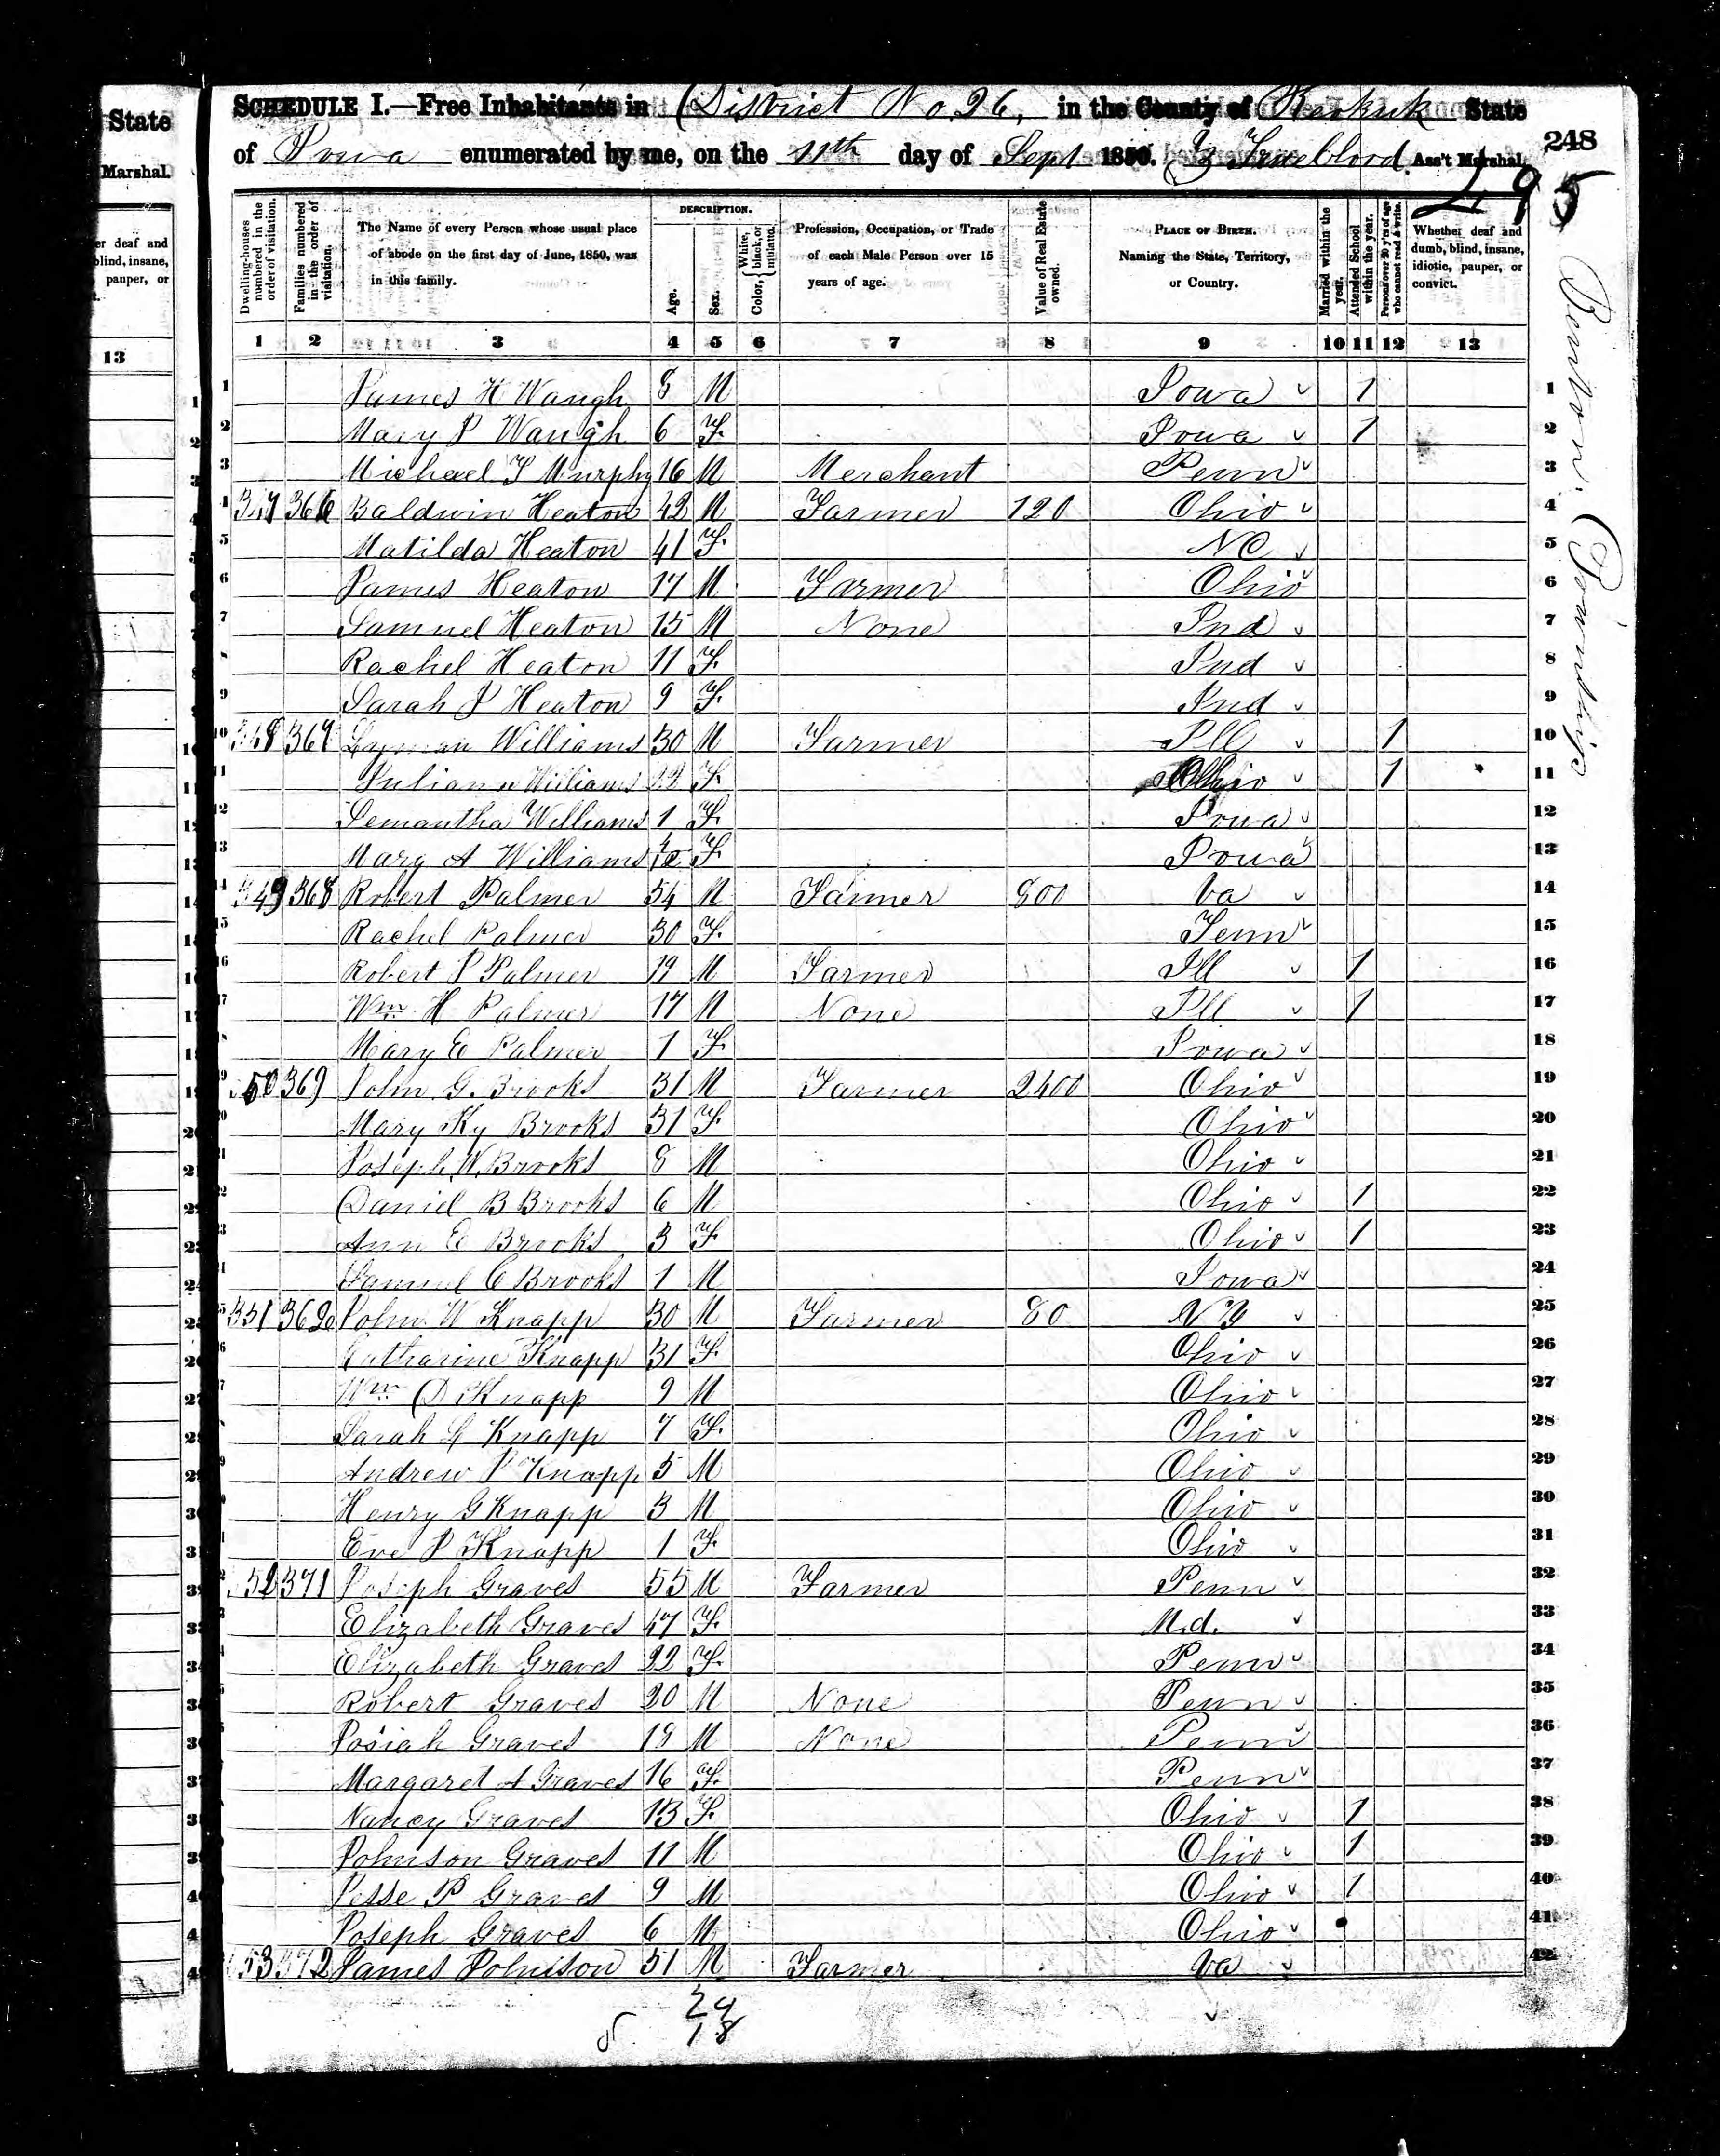 State
Marshal.
er deaf and
blind, insane,
pauper, or
t.
13
SCHEDULE I.—Free Inhabitants in District No. 26, in the County of Keokuk State
of Iowa enumerated by me, on the 11th day of Sept 1850. Trueblood Ass't Marshal.
248
495
Benton Township
Dwelling-houses numbered in the order of visitation.
Families numbered in the order of visitation.
The Name of every Person whose usual place of abode on the first day of June, 1850, was in this family.
DESCRIPTION.
Age.
Sex.
Color, White, black, or mulatto.
Profession, Occupation, or Trade of each Male Person over 15 years of age.
Value of Real Estate owned.
PLACE OF BIRTH. Naming the State, Territory, or Country.
Married within the year.
Attended School within the year.
Persons over 20 y'rs of age who cannot read & write.
Whether deaf and dumb, blind, insane, idiotic, pauper, or convict.
1 2 3 4 5 6 7 8 9 10 11 12 13
1 James H Waugh 8 M Iowa 1 1
2 Mary J Waugh 6 F. Iowa 1 2
3 Michael T Murphy 16 M Merchant Penn 3
4 347 366 Baldwin Heaton 42 M Farmer 120 Ohio 4
5 Matilda Heaton 41 F. NC 5
6 James Heaton 17 M Farmer Ohio 6
7 Samuel Heaton 15 M None Ind 7
8 Rachel Heaton 11 F. Ind 8
9 Sarah J Heaton 9 F. Ind 9
10 348 367 Lyman Williams 30 M Farmer Ill 1 10
11 Juliann Williams 22 F. Ohio 1 11
12 Semantha Williams 1 F. Iowa 12
13 Mary A Williams F Iowa 13
14 349 368 Robert Palmer 54 M Farmer 800 Va 14
15 Rachel Palmer 30 F. Tenn 15
16 Robert J Palmer 19 M Farmer Ill 1 16
17 Wm H Palmer 17 M None Ill 1 17
18 Mary E Palmer 1 F. Iowa 18
19 50 369 John G. Brooks 31 M Farmer 2400 Ohio 19
20 Mary Ky Brooks 31 F. Ohio 20
21 Joseph W. Brooks 8 M Ohio 21
22 Daniel B Brooks 6 M Ohio 1 22
23 Ann E Brooks 3 F Ohio 1 23
24 Samuel C Brooks 1 M Iowa 24
25 351 John W Knapp 30 M Farmer 80 NY 25
26 Catharine Knapp 31 F. Ohio 26
27 Wm D Knapp 9 M Ohio 27
28 Sarah Knapp 7 F. Ohio 28
29 Andrew J Knapp 5 M Ohio 29
30 Henry G Knapp 3 M Ohio 30
31 Eve J Knapp 1 F Ohio 31
32 52 371 Joseph Graves 55 M Farmer Penn 32
33 Elizabeth Graves 47 F. M.d. 33
34 Elizabeth Graves 22 F. Penn 34
35 Robert Graves 20 M None Penn 35
36 Josiah Graves 18 M None Penn 36
37 Margaret A Graves 16 F. Penn 37
38 Nancy Graves 13 F. Ohio 1 38
39 Johnson Graves 11 M Ohio 1 39
40 Jesse P Graves 9 M Ohio 1 40
41 Joseph Graves 6 M Ohio 41
42 53 372 James Johnson 51 M Farmer Va 42
24
18